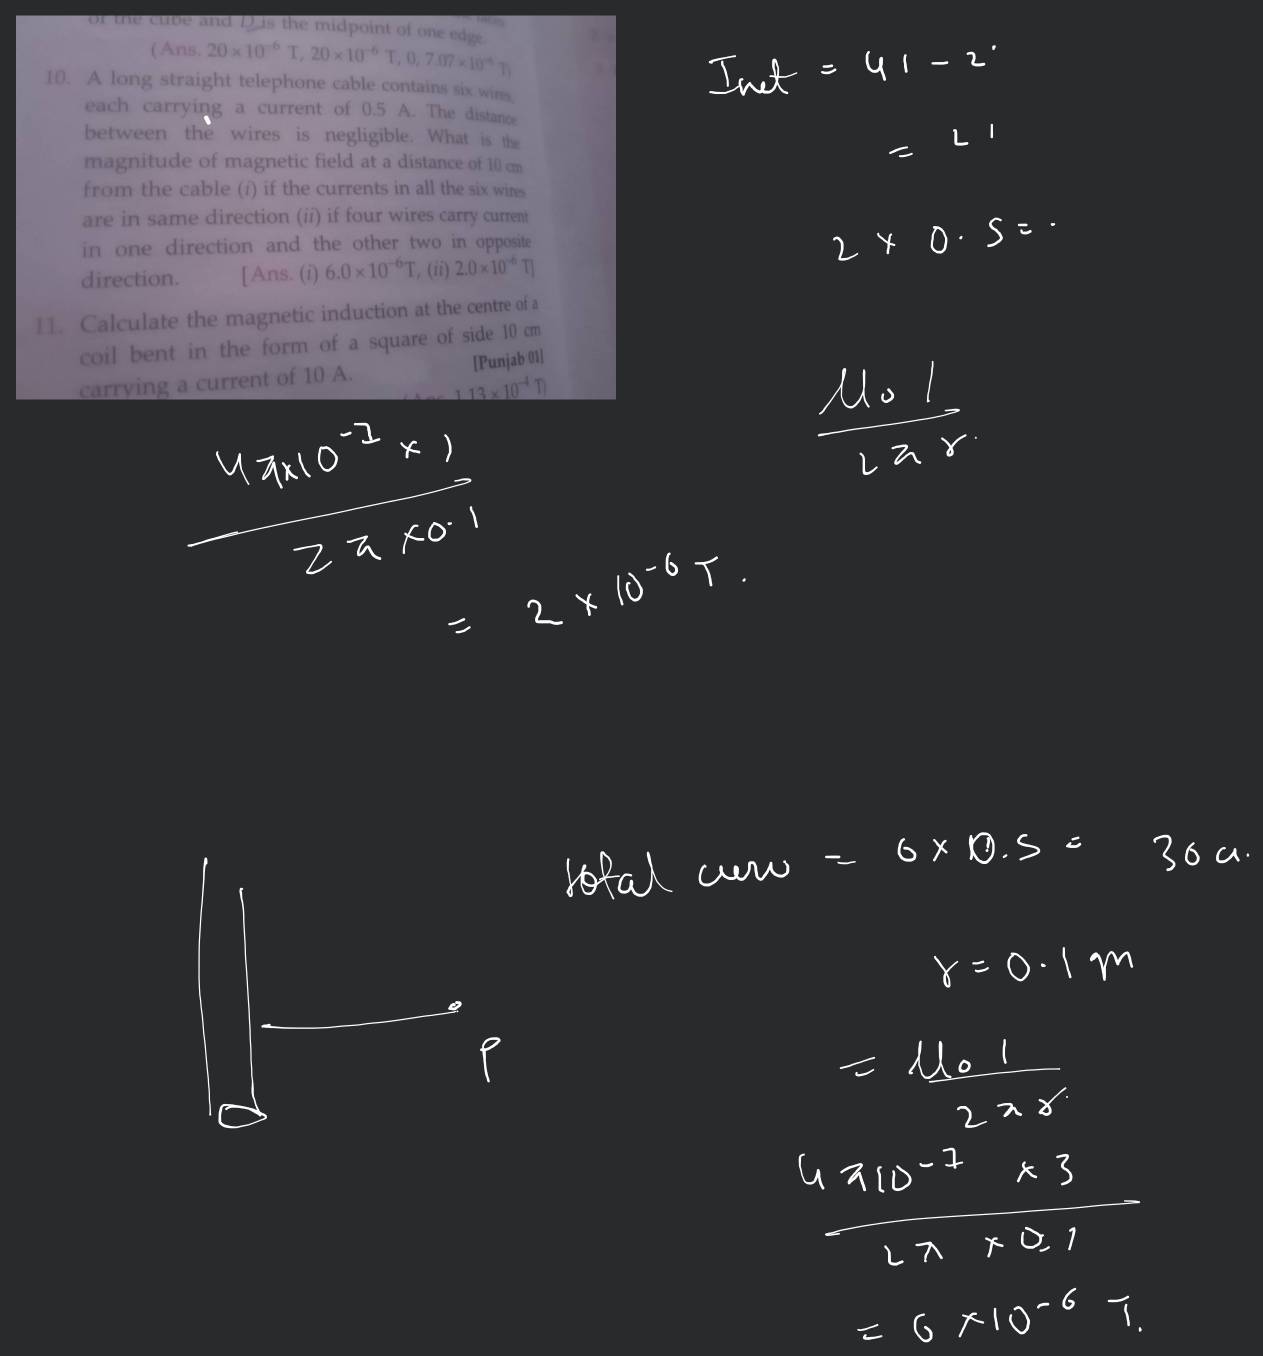 of the cube and D is the midpoint of one edge.
(Ans. 20 × 10⁻⁶ T, 20 × 10⁻⁶ T, 0, 7.07 × 10⁻⁶ T)
10. A long straight telephone cable contains six wires,
each carrying a current of 0.5 A. The distance
between the wires is negligible. What is the
magnitude of magnetic field at a distance of 10 cm
from the cable (i) if the currents in all the six wires
are in same direction (ii) if four wires carry current
in one direction and the other two in opposite
direction. [Ans. (i) 6.0 × 10⁻⁶ T, (ii) 2.0 × 10⁻⁶ T]
11. Calculate the magnetic induction at the centre of a
coil bent in the form of a square of side 10 cm
carrying a current of 10 A. [Punjab 01]
1.13 × 10⁻⁴ T)
Inet = 4I - 2
= 2I
2 × 0.5 = .
μ₀ I
2πr
4π×10⁻⁷ × 1
2π × 0.1
= 2 × 10⁻⁶ T.
total = 6 × 0.5 = 30 a.
r = 0.1 m
P
= μ₀ I
2πr
4π10⁻⁷ × 3
2π × 0.1
= 6 × 10⁻⁶ T.